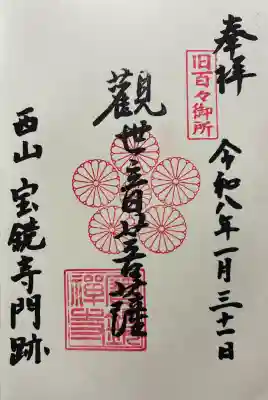 奉拝
旧百々御所
令和八年一月三十一日
觀世音菩薩
西山 宝鏡寺門跡